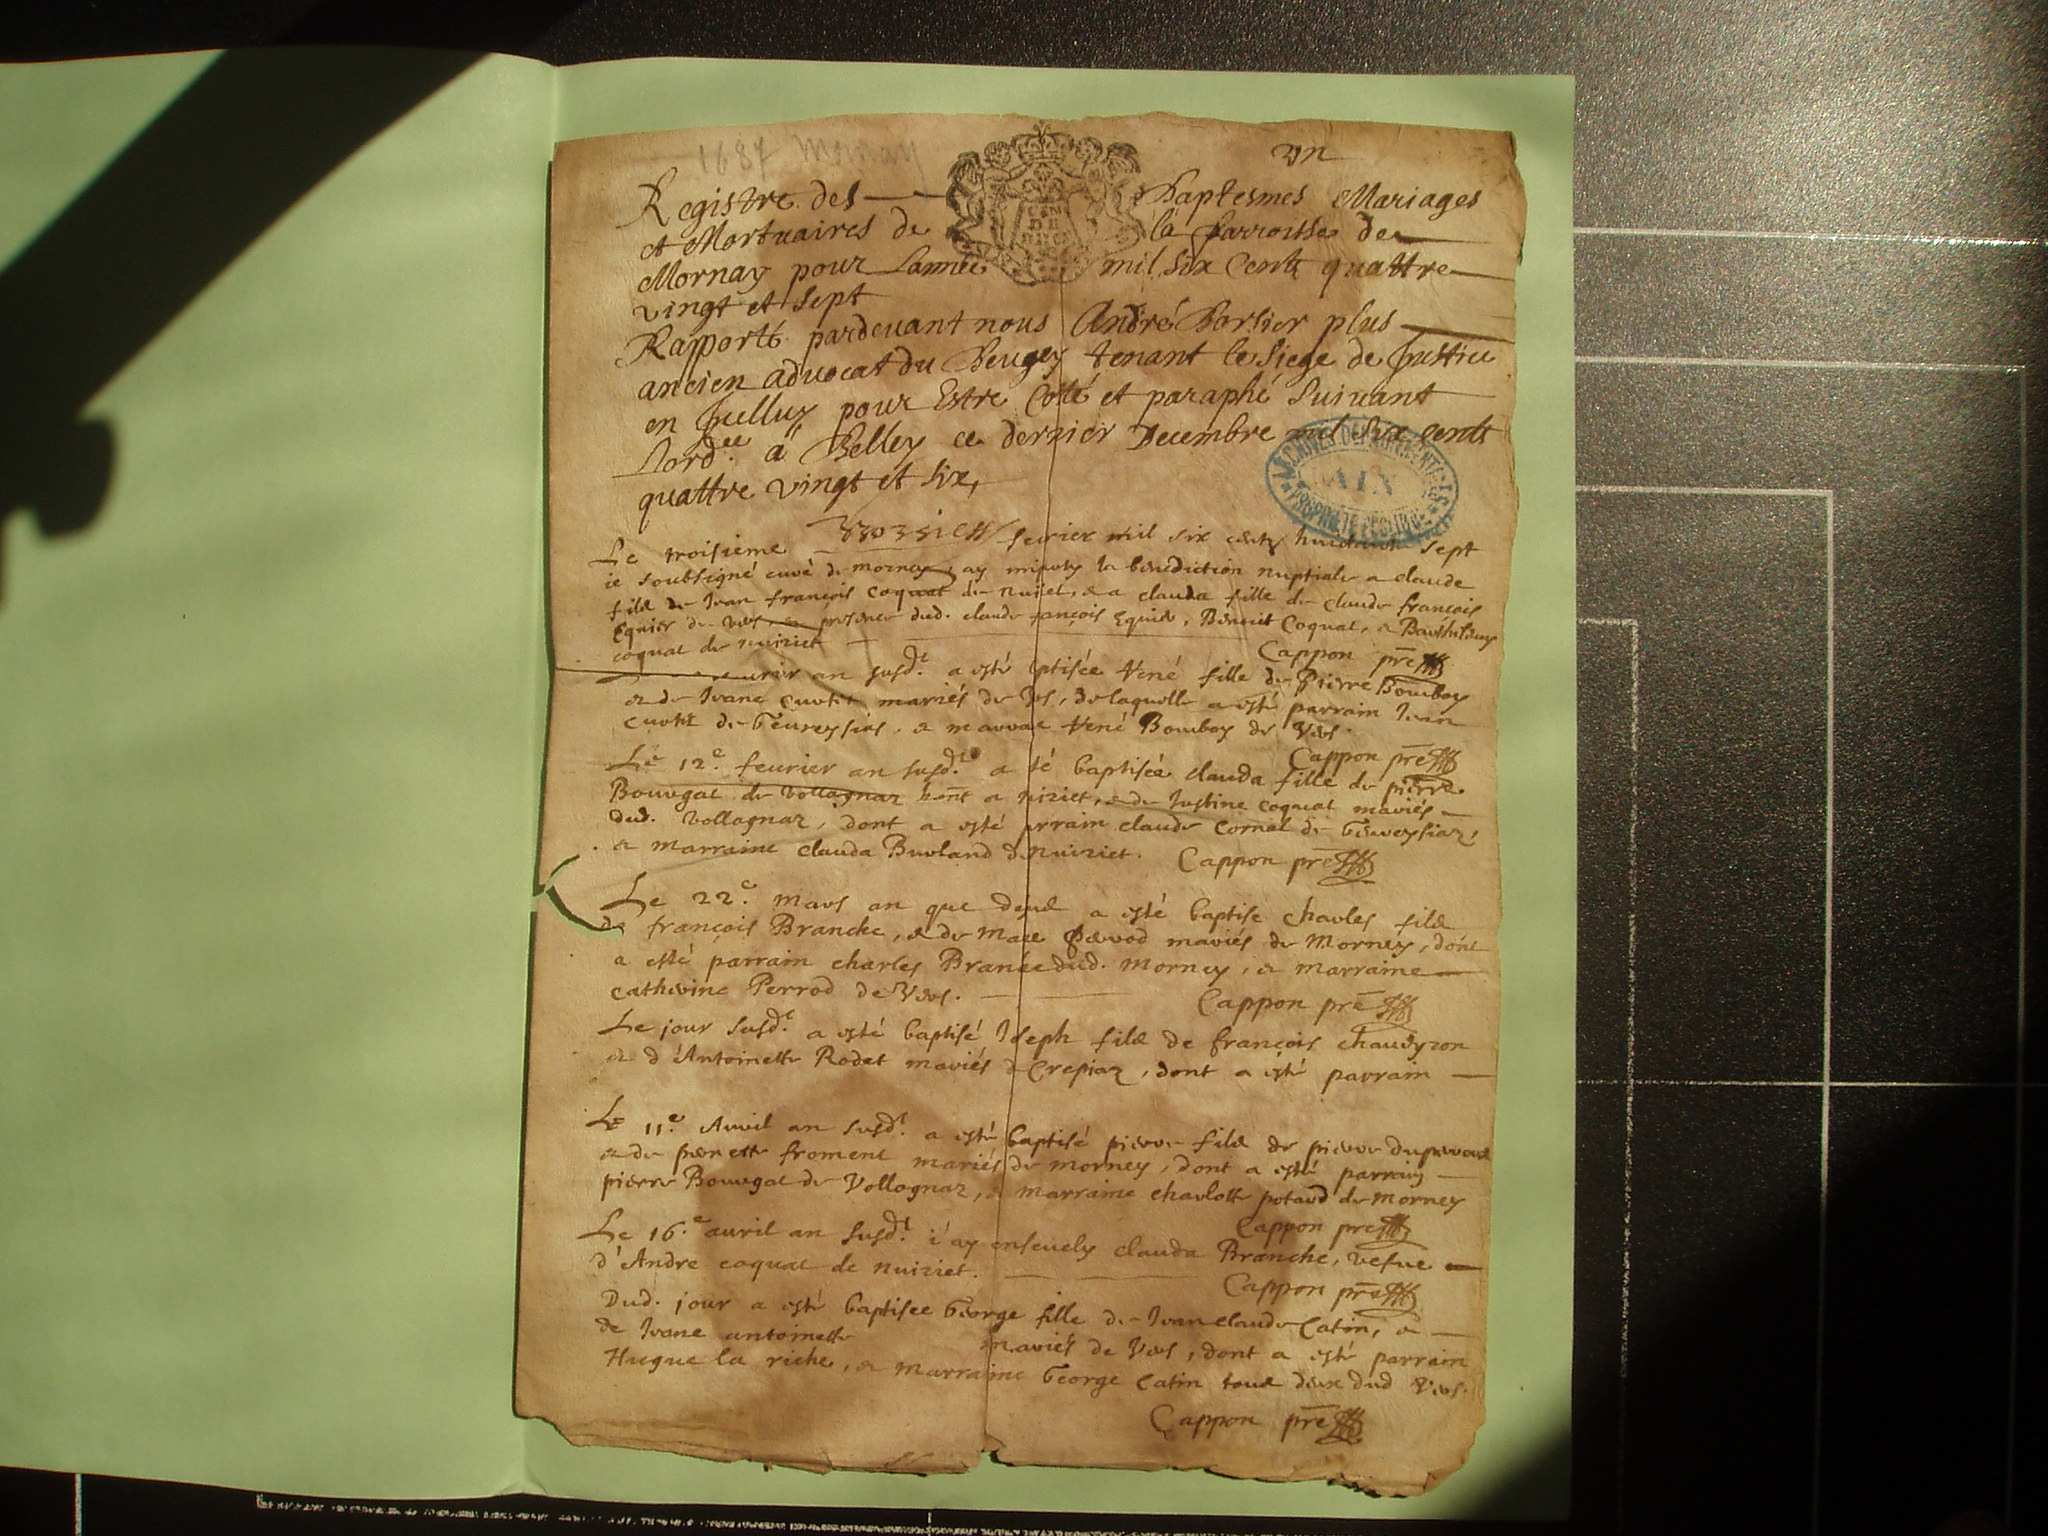 1687 Mornay
un
Registre des Baptesmes Mariages
et Mortuaires de la Parroisse de
Mornay pour Lannee mil six Cents quattre
vingt et sept
Rapporté pardevant nous André Borsier plus
ancien advocat du Beugey tenant le siege de Justice
en Jcelluy pour Estre Cotté et paraphé suivant
Lord.ce a Belley ce dernier Decembre mil six cents
quattre vingt et six,
Le troisieme feurier mil six cents sept
ie soubsigné curé de mornay, ay la benediction nuptiale a claude
filz de Jean françois coquat de nuiriet, & a clauda fille de claude françois
de Vers, presence dud. claude françois, Benoit Coquat, &
coquat de nuiriet
Cappon pre
an susd.t a esté fille de Pierre Bomboy
& de Jeane mariés de Vers, de laquelle a esté parrain Jean
de Geureysias, & Bomboy de Vers.
Cappon pre
Le 12.e feurier an susd.t a té baptisée clauda fille de pierre
Bouvgat de Vollagnaz a niriet, & de Justine coquat mariés
dud. Vollagnaz, dont a esté claude cornal de Geureysiaz,
& marraine clauda Burland de nuiriet. Cappon pre
Le 22.e mars an que dessus a esté baptise charles filz
de françois Branche, & de mariés de Mornay, dont
a esté parrain charles Branche dud. Mornay, & marraine
catherine Perrod de Vers.
Cappon pre
Le jour susd.t a esté baptisé Joseph filz de françois
& d'Antoinette Rodet mariés de Crepiaz, dont a esté parrain
Le 11.e Avril an susd.t a esté baptisé pierre filz de pierre
& de froment mariés de mornay, dont a esté parrain
pierre Bouvgat de Vollagnaz, & marraine charlotte potard de mornay
Cappon pre
Le 16.e avril an susd.t i'ay ensevely clauda Branche, vefve
d'Andre coquat de nuiriet.
Cappon pre
Dud. jour a esté baptisee George fille de Jean claude Catin, &
de Jeane antoinette mariés de Vers, dont a esté parrain
Hugue la riche, & marraine George Catin tous deux dud Vers.
Cappon pre
ARCHIVES DEPARTEMENTALES
AIN
PROPRIETE PUBLIQUE